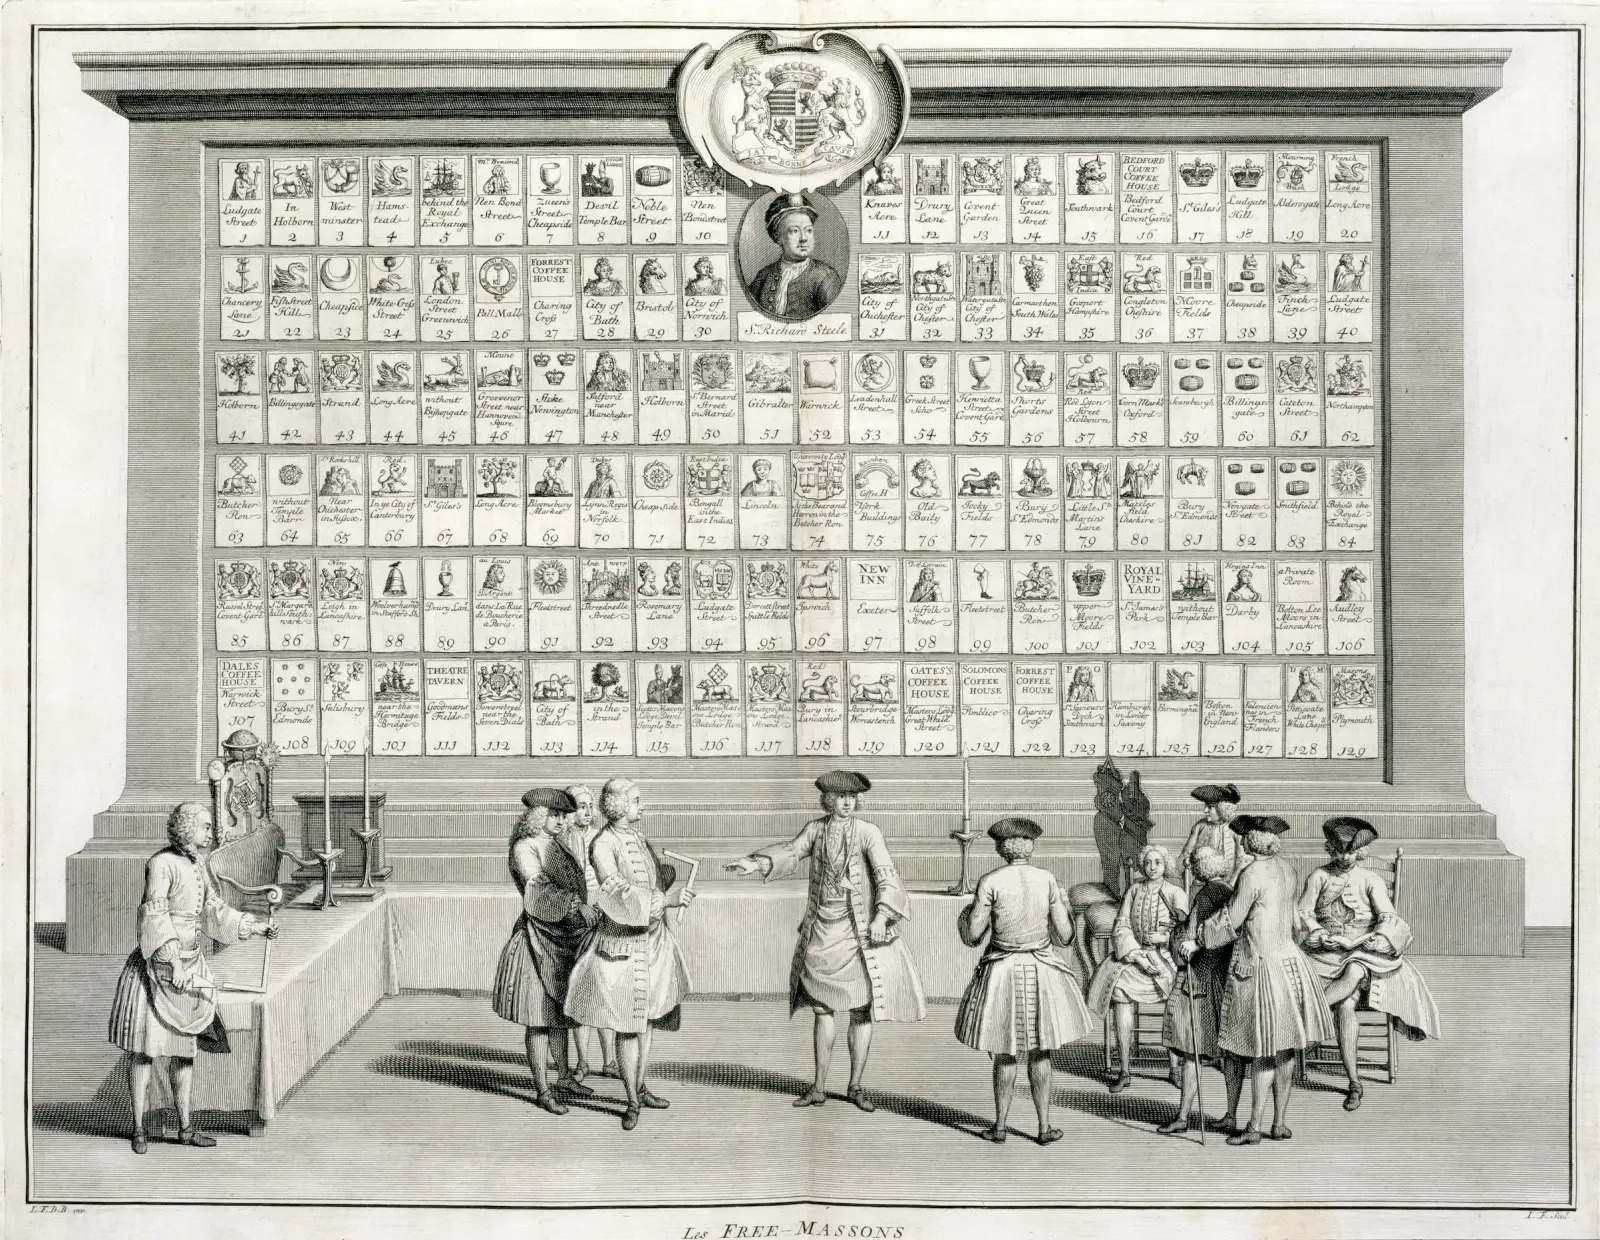 BONNE CAUSE
Sr. Richard Steele
Ludgate
Street
1
In
Holborn
2
West-
minster
3
Hams-
tead
4
behind the
Royal
Exchange
5
New Bond
Street
6
Queen's
Street
Cheapside
7
Devil
Temple Bar
8
Noble
Street
9
New
Bondstreet
10
Knaves
Acre
11
Drury
Lane
12
Covent
Garden
13
Great
Queen
Street
14
Southwark
15
BEDFORD
COURT
COFFEE
HOUSE
Bedford
Court
Covent Gard.
16
St. Giles's
17
Ludgate
Hill
18
Mourning
Bush
Aldersgate
19
French
Lodge
Long Acre
20
Chancery
Lane
21
Fishstreet
Hill
22
Cheapside
23
White-Cross
Street
24
London
Street
Greenwich
25
Pall Mall
26
FORREST
COFFEE
HOUSE
Charing
Cross
27
City of
Bath
28
Bristol
29
City of
Norwich
30
City of
Chichester
31
Northgate Str
City of
Chester
32
Watergate Str
City of
Chester
33
Carmarthen
South Wales
34
East
India
Gosport
Hampshire
35
Red
Congleton
Cheshire
36
Moore
Fields
37
Cheapside
38
Finch
Lane
39
Ludgate
Street
40
Holborn
41
Billingsgate
42
Strand
43
Long Acre
44
without
Bishopgate
45
Mount
Grosvenor
Street near
Hannover
Squre
46
Stoke
Newington
47
Salford
near
Manchester
48
Holborn
49
St. Bernard
Street
in Madrid
50
Gibralter
51
Warwick
52
Leadenhall
Street
53
Greek Street
Soho
54
Henrietta
Street
Covent Gard.
55
Shorts
Gardens
56
Red
Red Lyon
Street
Holbourn
57
Corn Mark't
Oxford
58
Scarsburgh
59
Billings
gate
60
Cateton
Street
61
Northampton
62
Butcher
Ron
63
without
Temple
Barr
64
Near
Chichester
in Sussex
65
Red
In ye City of
Canterbury
66
St. Giles's
67
Long Acre
68
Bloomsbury
Market
69
Dukes
Lynn Regis
in
Norfolk
70
Cheap side
71
East India
Bengall
in the
East Indies
72
Lincoln
73
University Lodg
At the Bear and
Harrow in the
Butcher Ron
74
Rainbow
Coffee H
York
Buildings
75
Old
Baily
76
Jocky
Fields
77
Bury
St. Edmonds
78
Little St.
Martins
Lane
79
Maccles
field
Cheshire
80
Bury
St. Edmonds
81
Newgate
Street
82
Smithfield
83
Behind the
Royal
Exchange
84
Russel Street
Covent Gard.
85
St. Margart
hill South
wark
86
New
Leigh in
Lancashire
87
Woolverhamp.
in Stafford Sh.
88
Drury Lan.
89
au Louis
D'Argent
dans La Rue
de Boucherie
a Paris
90
Fleetstreet
91
Antwerp
Threedneedle
Street
92
Rosemary
Lane
93
Ludgate
Street
94
Dorsett Street
Spittle Fields
95
White
Ipswich
96
NEW
INN
Exeter
97
D. of Lorrain
Suffolk
Street
98
Fleetstreet
99
Butcher
Ron
100
upper
Moore
Fields
101
ROYAL
VINE-
YARD
St. James's
Park
102
without
Temple Bar
103
Virgins Inn
Darby
104
a Private
Room
Bolton Lee
Moors in
Lancashire
105
Audley
Street
106
DALES
COFFEE
HOUSE
Warwick
Street
107
Bury St.
Edmonds
108
Salisbury
109
Coffe House
near the
Hermitage
Bridge
101
THEATRE
TAVERN
Goodmans
Fields
111
Towerstreet
near the
Seven Dials
112
City of
Bath
113
in the
Strand
114
Scotts Masons
Lodge Devil
Temple Bar
115
Masters Mas-
ons Lodge
Butcher Ron
116
Masters Mas-
ons Lodge
Strand
117
Red
Bury in
Lancashier
118
Stourbridge
Worcestersh
119
OATES'S
COFFEE
HOUSE
Masters Lodg
Great Wild
Street
120
SOLOMONS
COFFEE
HOUSE
Pimblico
121
FORREST
COFFEE
HOUSE
Charing
Cross
122
P O
St. Saviours
Dock
Southwark
123
Hamburgh
in Lower
Saxony
124
Birmingha
125
Boston
in New
England
126
Valencien-
nes in
French
Flanders
127
D M
Pettycoate
Lane
White Chaple
128
Masons
Plymouth
129
L.F.D.B. inv.
I. F. Scul.
Les FREE-MASSONS